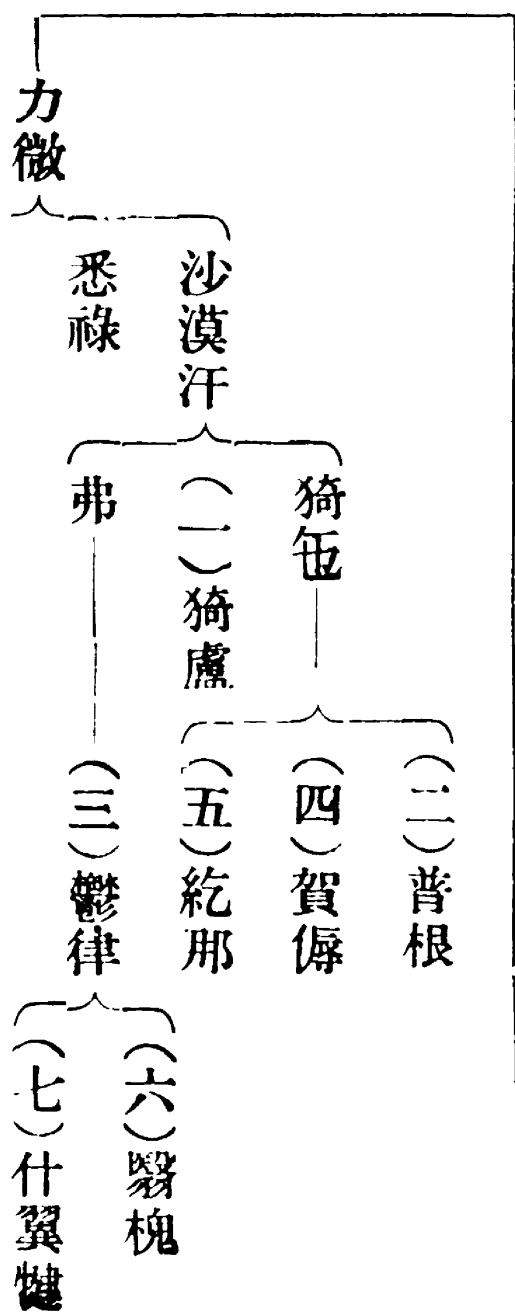 力微
沙漠汗
悉祿
猗㐌
(一)猗盧
弗
(二)普根
(四)賀傉
(五)紇那
(三)鬱律
(六)翳槐
(七)什翼犍